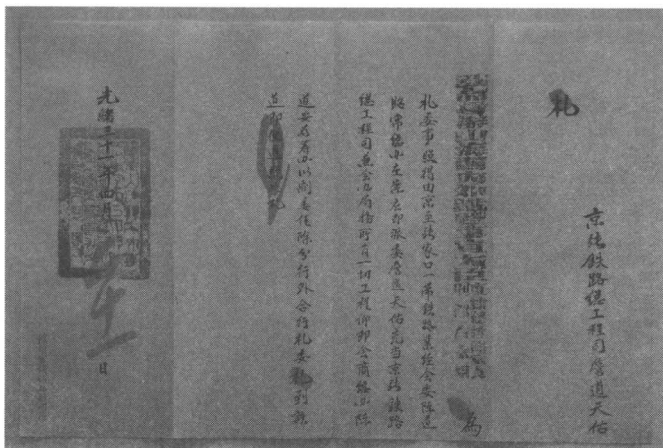 札
京張鉄路總工程司詹道天佑
為
札委事照得由京至張家口一帶鐵路業經會委陳道
昭常總办在案應即派委詹道天佑充當京張鐵路
總工程司兼會办局務所有一切工程仰即会商總办陳
道妥為籌办以副委任除分行外合行札委札到該
道即便遵照此札
光緒三十一年四月 日